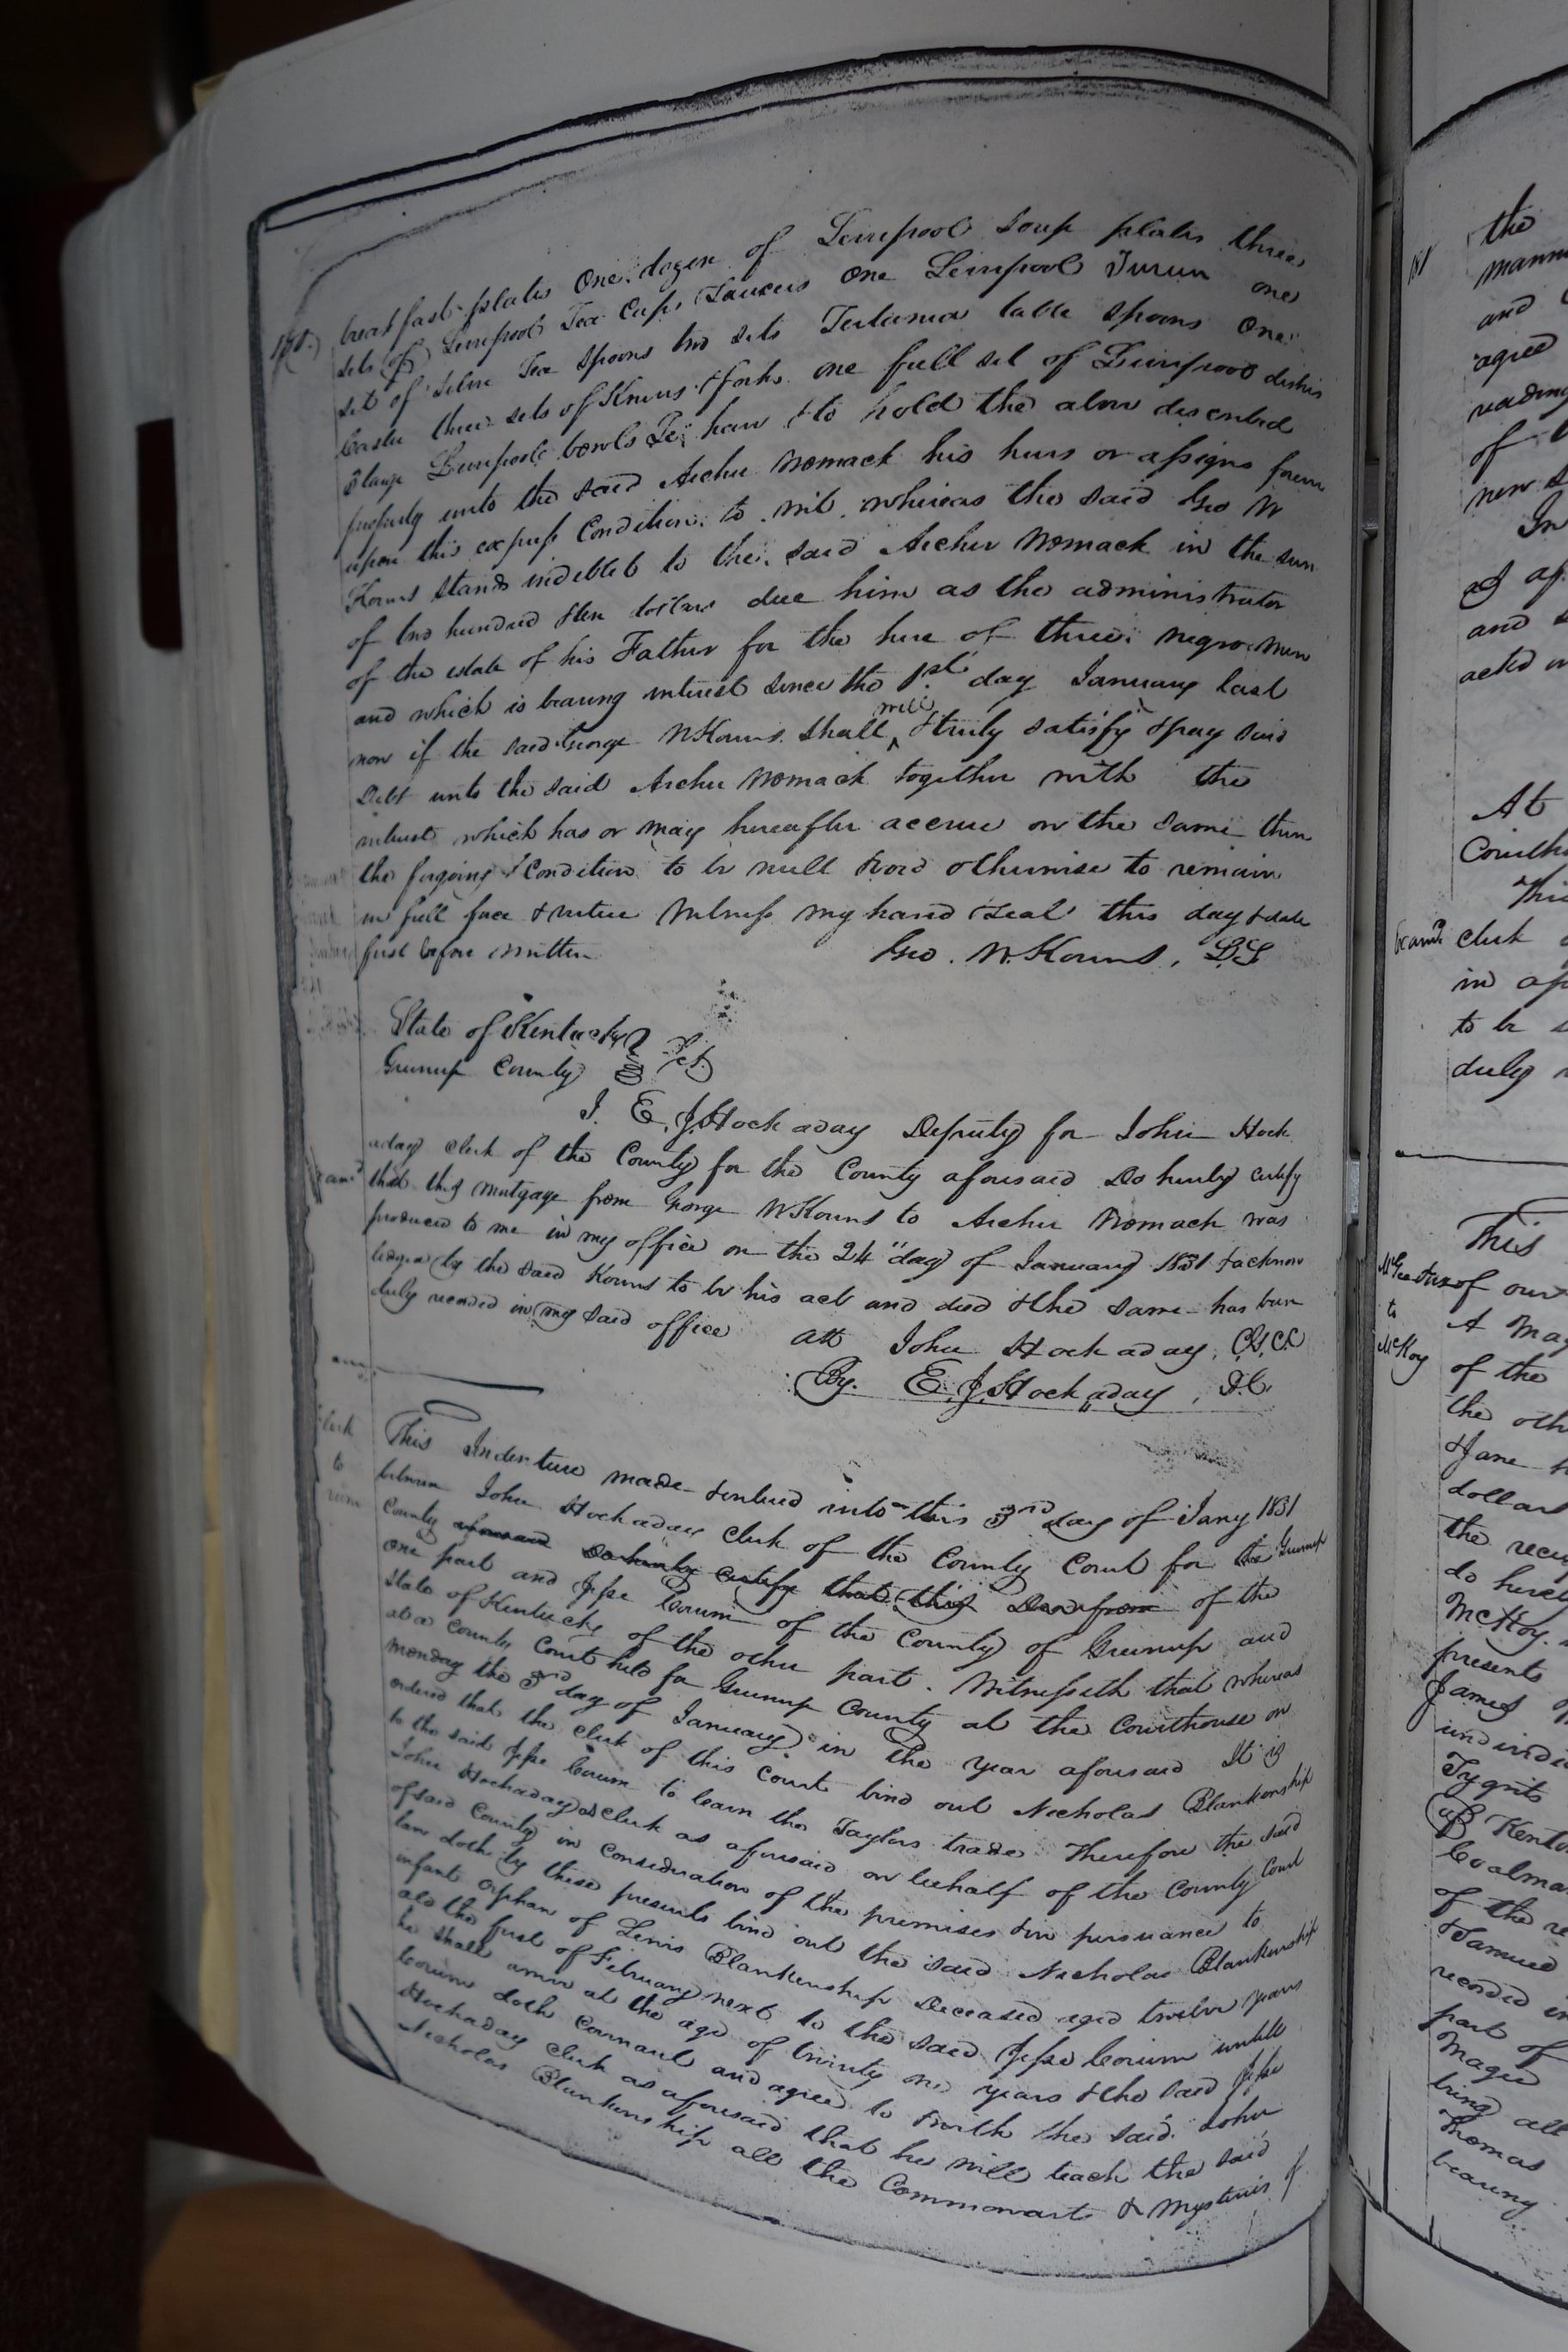 180.) breakfast plates One dozen of Leiverpool Soup plates three
sets of Liverpool Tea Cups & Saucers One Liverpool Turun one
set of Silver Tea Spoons two sets Tertania table Spoons One
Caster three sets of Knives & forks one full set of Liverpool dishes
3 large Liverpool bowls To have & to hold the above described
property unto the said Archer Womack his heirs or assigns forever
upon this express Condition to wit whereas the said Geo W
Kouns stands indebted to the said Archer Womack in the sum
of two hundred & ten dollars due him as the administrator
of the estate of his Father for the hire of three negro men
and which is bearing interest since the 1st day January last
now if the said George W Kouns shall will & truly satisfy & pay said
Debt unto the said Archer Womack together with the
interest which has or may hereafter accrue on the same then
the forgoing Condition to be null & void otherwise to remain
in full force & virtue Witness my hand & seal this day & date
first before written Geo. W. Kouns, LS
State of Kentucky
Greenup County Sct.
I. E. J. Hockaday Deputy for John Hock
aday clerk of the County for the County aforesaid Do hereby certify
that this mortgage from George W Kouns to Archer Womack was
produced to me in my office on the 24" day of January 1831 & acknow
ledged by the said Kouns to be his act and deed & the same has been
duly recorded in my said office
Att John Hockaday, C.G.C.C
By. E. J. Hockaday, D.C.
This Indenture made & entered into this 3rd day of Jany 1831
between John Hockaday clerk of the County Court for the Greenup
County aforesaid Do hereby certify that this Deed from of the
one part and Jesse Corum of the County of Greenup and
State of Kentucky of the other part. Witnesseth that whereas
at a County Court held for Greenup County at the Courthouse on
monday the 3rd day of January in the year aforesaid It is
ordered that the clerk of this Court bind out Nicholas Blankenship
to the said Jesse Corum to learn the Taylors trade Therefore the said
John Hockaday as clerk as aforesaid on behalf of the County Court
of said County in consideration of the premises & in pursuance to
law doth by these presents bind out the said Nicholas Blankenship
infant orphan of Lewis Blankenship Deceased aged twelve years
old the first of February next to the said Jesse Corum untill
he shall arrive at the age of twenty one years & the said Jesse
Corum doth covenant and agree to & with the said John
Hockaday clerk as aforesaid that he will teach the said
Nicholas Blankenship all the Common arts & Mysteries of
181
the
and
agree
reading
of
new
In
and
acted
At
Courtho
This
Exam'd clerk
in
to be
duly
This
of our
to
McKoy
A Mag
of the
the oth
& Jane
dollars
the rece
do hereby
McKoy
presents
James
undivid
Tygerts
of Kentu
Coalma
of the
& Samuel
recorded in
part of
Magee
being all
Thomas
bearing